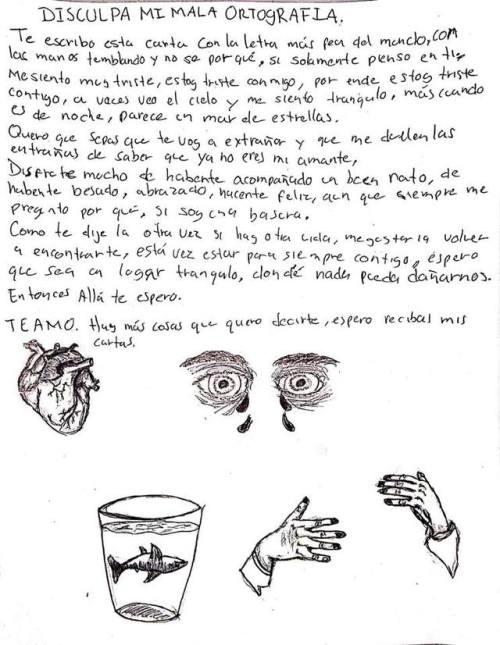 DISCULPA MI MALA ORTOGRAFIA.
Te escribo esta carta con la letra más fea del mundo, con
las manos temblando y no se por qué, si solamente pienso en ti,
me siento muy triste, estoy triste conmigo, por ende estoy triste
contigo, a veces veo el cielo y me siento tranquilo, más cuando
es de noche, parece un mar de estrellas.
Quero que sepas que te voy a extrañar y que me duelen las
entrañas de saber que ya no eres mi amante,
Disfrete mucho de habente acompañado un buen rato, de
habente besado, abrazado, hacente feliz, aun que siempre me
pregnto por qué, si soy una basura.
Como te dije la otra vez si hay otra vida, me gustaria volver
a encontrarte, está vez estar para siempre contigo, espero
que sea en lugar tranquilo, dondé nada pueda dañarnos.
Entonces Allá te espero.
TE AMO. Hay más cosas que quero decirte, espero recibas mis
cartas.